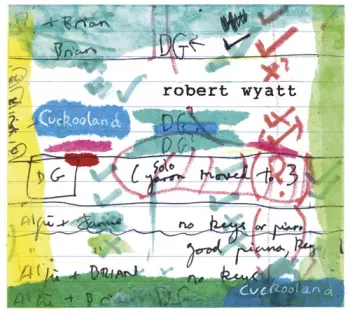 + Brian
Brian DG
x?
robert wyatt
Cuckooland DG? 4
DG?
solo
DG (yaron moved to 3
?
Alfie + Jamie no keys or piano
good piano, key
Alfie + BRIAN no keys
Alfie + Brian DG
Cuckooland